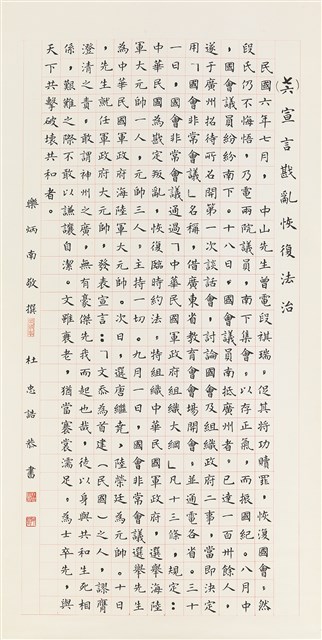 (六七)宣言戡亂恢復法治
民國六年七月，中山先生曾電段祺瑞，促其將功贖罪，恢復國會，然
段氏仍不悔悟，乃電兩院議員，南下集會，以存正氣，而抵國紀。八月中
，國會議員紛紛南下。十八日，國會議員南抵廣州者，已達一百卅餘人，
遂于廣州招待所召開第一次談話會，討論國會及組織政府二事，當即決定
用「國會非常會議」名稱，借廣東省教育會會場開會，並通電各省。三十
一日，國會非常會議通過「中華民國軍政府組織大綱」凡十三條，規定：
中華民國為戡定叛亂，恢復臨時約法，特組織中華民國軍政府，選舉海陸
軍大元帥一人，元帥三人，主持一切。九月一日，國會非常會議選舉先生
為中華民國軍政府海陸軍大元帥。次日，選唐繼堯，陸榮廷為元帥。十日
，先生就任軍政府大元帥，發表宣言：「文忝為首建（民國）之人，謬膺
澄清之責，敢謂神州之廣，無有豪傑先我而起也哉，徒以身與共和生死相
係，艱難之際不敢以謙讓自潔。文雖衰老，猶當褰裳濡足。為士卒先，與
天下共擊破壞共和者。
樂炳南敬撰　杜忠誥恭書